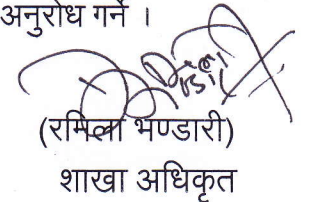 अनुरोध गर्ने ।
(रमिला भण्डारी)
शाखा अधिकृत